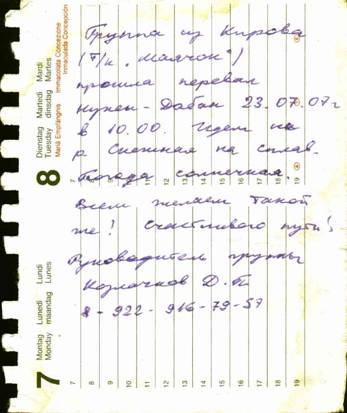 Группа из Кирова
(Т/к „Маячок")
прошла перевал
Нукен-Дабан 23.07.07г
в 10.00. Идем на
р Снежная на сплав.
Погода солнечная.
Всем желаем такой
же! Счастливого пути!
Руководитель группы
Козлачков Д.
8-922-916-79-57
8
Dienstag Martedì Mardi
Tuesday dinsdag Martes
Mariä Empfängnis Immacolata Concezione
Inmaculada Concepción
7
Montag Lunedì Lundi
Monday maandag Lunes
7 8 9 10 11 12 13 14 15 16 17 18 19
7 8 9 10 11 12 13 14 15 16 17 18 19